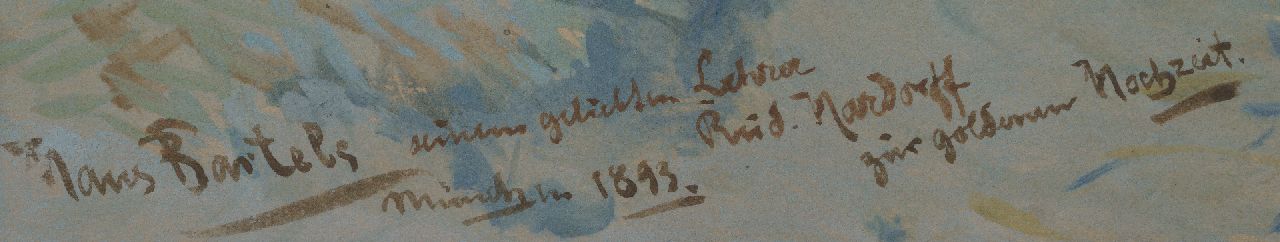 Hans Bartels seinem geliebten Lehrer
Rud. Hardorff
zur goldenen Hochzeit.
München 1893.